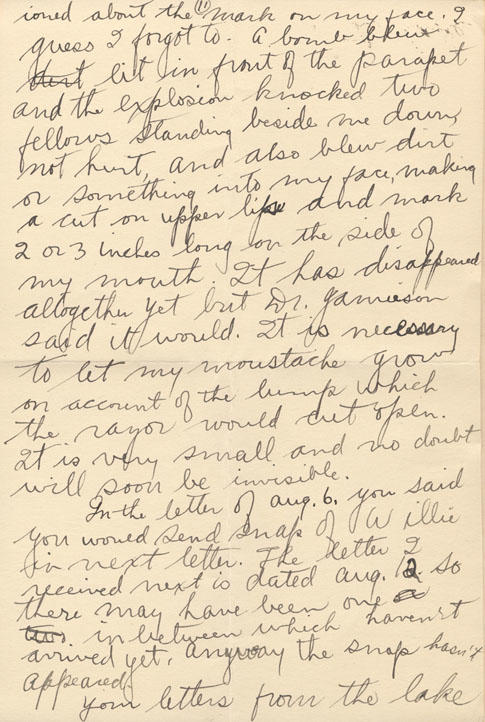 ioned about the (11) mark on my face. I
guess I forgot to. A bomb blew
lit in front of the parapet
and the explosion knocked two
fellows standing beside me down,
not hurt, and also blew dirt
or something into my face, making
a cut on upper lip and mark
2 or 3 inches long on the side of
my mouth. It has disappeared
altogether yet but Dr. Jamieson
said it would. It is necessary
to let my moustache grow
on account of the bump which
the razor would cut open.
It is very small and no doubt
will soon be invisible.
In the letter of Aug. 6. you said
you would send snap of Willie
in next letter. The letter I
received next is dated Aug. 12. so
there may have been one
two in between which haven't
arrived yet, anyway the snap hasn't
appeared.
Your letters from the lake